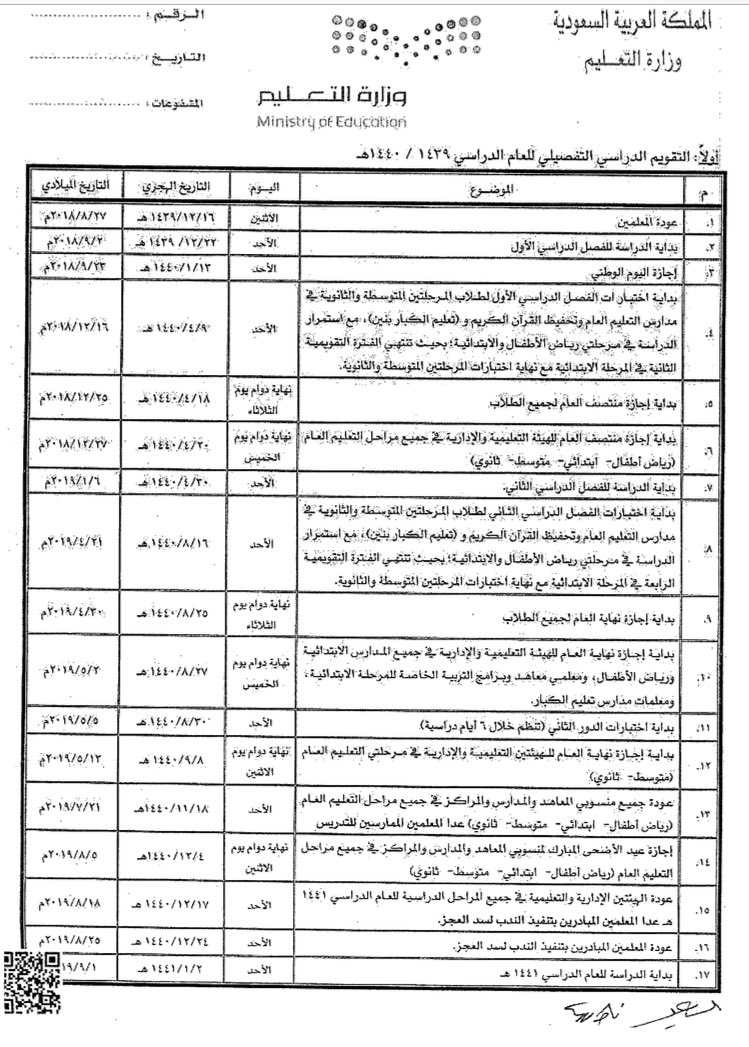 المملكة العربية السعودية
وزارة التعليم
وزارة التعليم
Ministry of Education
الرقم :
التاريخ :
المشفوعات :
أولاً: التقويم الدراسي التفصيلي للعام الدراسي ١٤٣٩ / ١٤٤٠هـ
م. الموضوع اليوم التاريخ الهجري التاريخ الميلادي
١. عودة المعلمين الاثنين ١٤٣٩/١٢/١٦هـ ٢٠١٨/٨/٢٧م
٢. بداية الدراسة للفصل الدراسي الأول الأحد ١٤٣٩/١٢/٢٢هـ ٢٠١٨/٩/٢م
٣. إجازة اليوم الوطني الأحد ١٤٤٠/١/١٣هـ ٢٠١٨/٩/٢٣م
بداية اختبارات الفصل الدراسي الأول لطلاب المرحلتين المتوسطة والثانوية في
مدارس التعليم العام وتحفيظ القرآن الكريم و (تعليم الكبار بنين)، مع استمرار
٤. الدراسة في مرحلتي رياض الأطفال والابتدائية؛ بحيث تنتهي الفترة التقويمية الأحد ١٤٤٠/٤/٩هـ ٢٠١٨/١٢/١٦م
الثانية في المرحلة الابتدائية مع نهاية اختبارات المرحلتين المتوسطة والثانوية.
٥. بداية إجازة منتصف العام لجميع الطلاب نهاية دوام يوم الثلاثاء ١٤٤٠/٤/١٨هـ ٢٠١٨/١٢/٢٥م
٦. بداية إجازة منتصف العام للهيئة التعليمية والإدارية في جميع مراحل التعليم العام نهاية دوام يوم الخميس ١٤٤٠/٤/٢٠هـ ٢٠١٨/١٢/٢٧م
(رياض أطفال- ابتدائي- متوسط- ثانوي)
٧. بداية الدراسة للفصل الدراسي الثاني. الأحد ١٤٤٠/٤/٣٠هـ ٢٠١٩/١/٦م
بداية اختبارات الفصل الدراسي الثاني لطلاب المرحلتين المتوسطة والثانوية في
مدارس التعليم العام وتحفيظ القرآن الكريم و (تعليم الكبار بنين)، مع استمرار
٨. الدراسة في مرحلتي رياض الأطفال والابتدائية؛ بحيث تنتهي الفترة التقويمية الأحد ١٤٤٠/٨/١٦هـ ٢٠١٩/٤/٢١م
الرابعة في المرحلة الابتدائية مع نهاية اختبارات المرحلتين المتوسطة والثانوية.
٩. بداية إجازة نهاية العام لجميع الطلاب نهاية دوام يوم الثلاثاء ١٤٤٠/٨/٢٥هـ ٢٠١٩/٤/٣٠م
بداية إجازة نهاية العام للهيئة التعليمية والإدارية في جميع المدارس الابتدائية
١٠. ورياض الأطفال، ومعلمي معاهد وبرامج التربية الخاصة للمرحلة الابتدائية، نهاية دوام يوم الخميس ١٤٤٠/٨/٢٧هـ ٢٠١٩/٥/٢م
ومعلمات مدارس تعليم الكبار.
١١. بداية اختبارات الدور الثاني (تنظم خلال ٦ أيام دراسية) الأحد ١٤٤٠/٨/٣٠هـ ٢٠١٩/٥/٥م
١٢. بداية إجازة نهاية العام للهيئتين التعليمية والإدارية في مرحلتي التعليم العام نهاية دوام يوم الاثنين ١٤٤٠/٩/٨هـ ٢٠١٩/٥/١٣م
(متوسط- ثانوي)
١٣. عودة جميع منسوبي المعاهد والمدارس والمراكز في جميع مراحل التعليم العام الأحد ١٤٤٠/١١/١٨هـ ٢٠١٩/٧/٢١م
(رياض أطفال- ابتدائي- متوسط- ثانوي) عدا المعلمين الممارسين للتدريس
١٤. إجازة عيد الأضحى المبارك لمنسوبي المعاهد والمدارس والمراكز في جميع مراحل نهاية دوام يوم الاثنين ١٤٤٠/١٢/٤هـ ٢٠١٩/٨/٥م
التعليم العام (رياض أطفال- ابتدائي- متوسط- ثانوي)
١٥. عودة الهيئتين الإدارية والتعليمية في جميع المراحل الدراسية للعام الدراسي ١٤٤١ الأحد ١٤٤٠/١٢/١٧هـ ٢٠١٩/٨/١٨م
هـ عدا المعلمين المبادرين بتنفيذ الندب لسد العجز.
١٦. عودة المعلمين المبادرين بتنفيذ الندب لسد العجز. الأحد ١٤٤٠/١٢/٢٤هـ ٢٠١٩/٨/٢٥م
١٧. بداية الدراسة للعام الدراسي ١٤٤١ هـ الأحد ١٤٤١/١/٢هـ ١٩/٩/١م